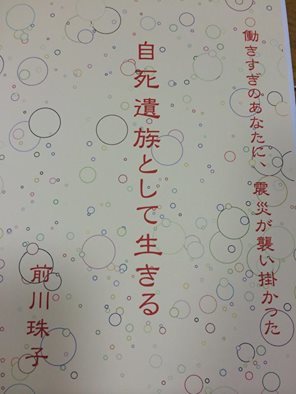 働きすぎのあなたに、震災が襲い掛かった
自死遺族として生きる
前川珠子